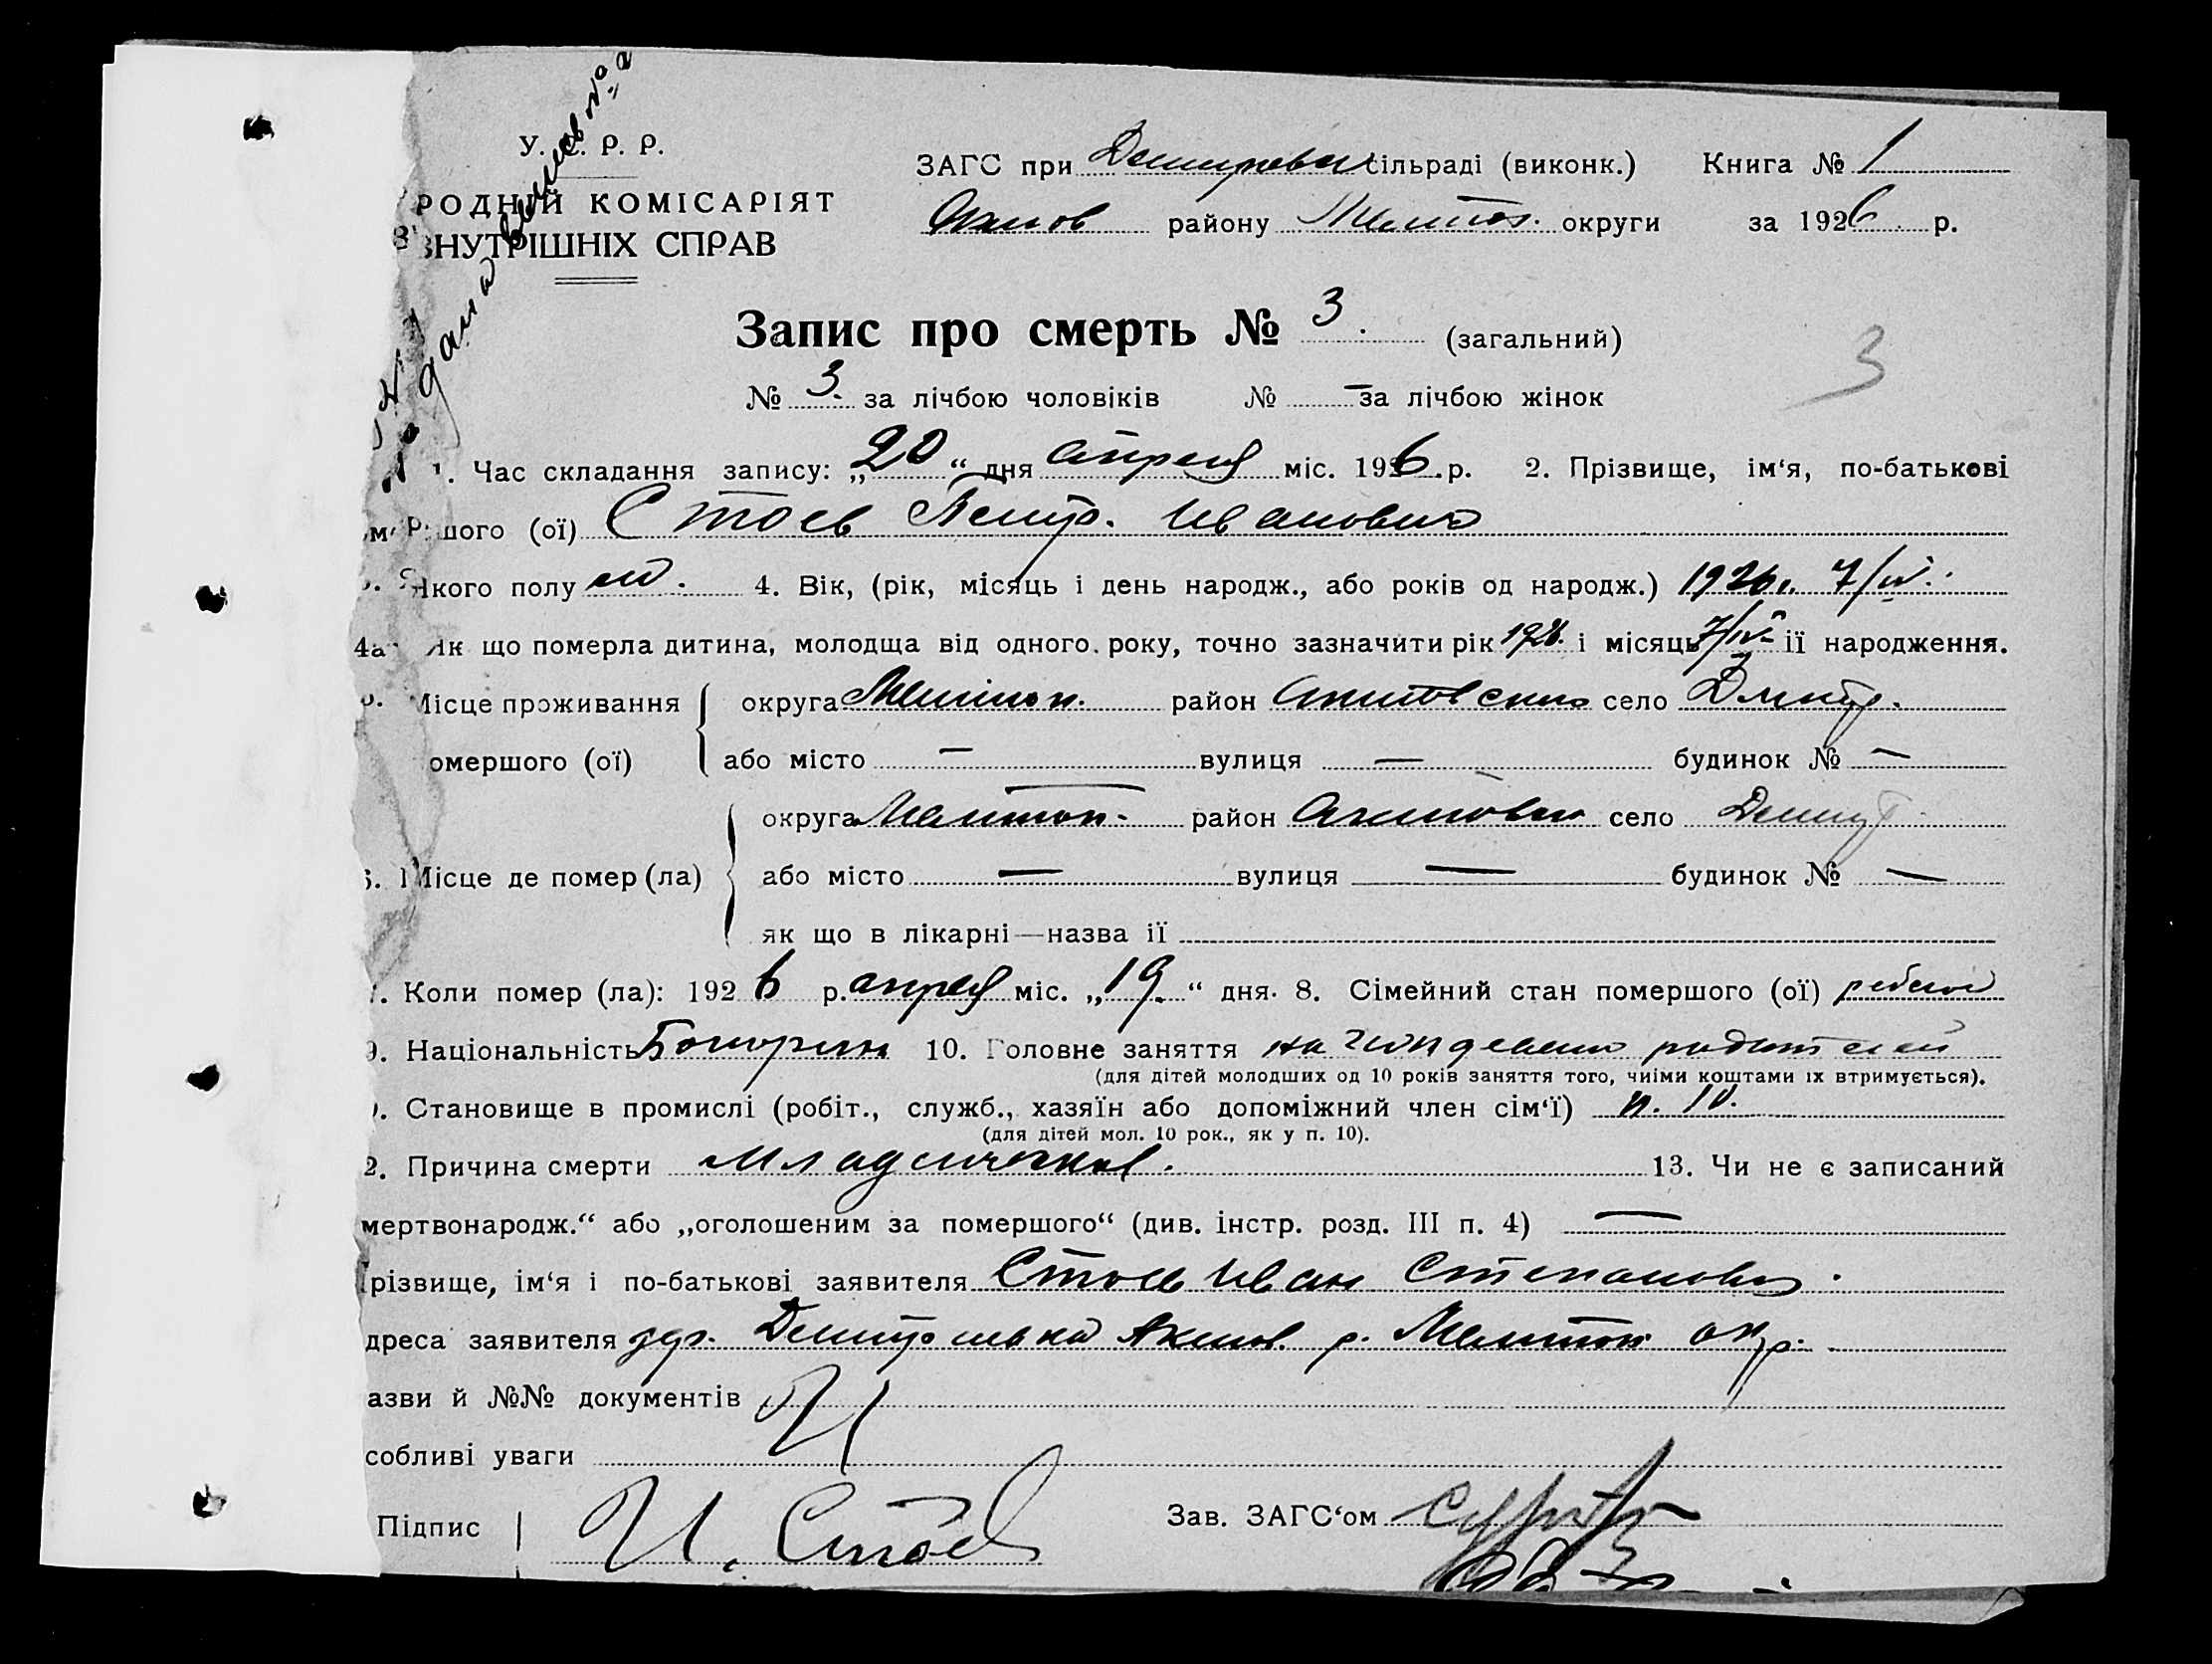 У. С. Р. Р.
РОДНІЙ КОМІСАРІЯТ
ВНУТРІШНІХ СПРАВ
ЗАГС при сільраді (виконк.) Книга № 1
Акимов району Мелитоп. округи за 1926 р.
Запис про смерть № 3. (загальний)
3
№ 3. за лічбою чоловіків № — за лічбою жінок
1. Час складання запису: „20“ дня апреля міс. 1926 р. 2. Прізвище, ім‘я, по-батькові
шого (ої) Стоев Петр. Иванович
Якого полу м. 4. Вік, (рік, місяць і день народж., або років од народж.) 1926 г. 7/IV.
4а Як що померла дитина, молодща від одного року, точно зазначити рік 1926. і місяць 7/IV ії народження.
Місце проживання округа Мелитоп. район Акимовский село Дмитр.
омершого (ої) або місто — вулиця — будинок № —
округа Мелитоп. район село
6. Місце де помер (ла) або місто — вулиця — будинок № —
як що в лікарні — назва ії
. Коли помер (ла): 1926 р. апреля міс. „19.“ дня. 8. Сімейний стан помершого (ої)
9. Національність Болгарин 10. Головне заняття на иждевении родителей
(для дітей молодших од 10 років заняття того, чиїми коштами їх втримується).
. Становище в промислі (робіт., служб., хазяїн або допоміжний член сім‘ї) п. 10.
(для дітей мол. 10 рок., як у п. 10).
2. Причина смерти младенческая. 13. Чи не є записаний
мертвонародж.“ або „оголошеним за помершого“ (див. інстр. розд. III п. 4) —
різвище, ім‘я і по-батькові заявителя Стоев Иван Степанович.
дреса заявителя дер. Акимов. р. Мелитоп. окр.
азви й №№ документів
собливі уваги
Підпис И. Стоев Зав. ЗАГС‘ом